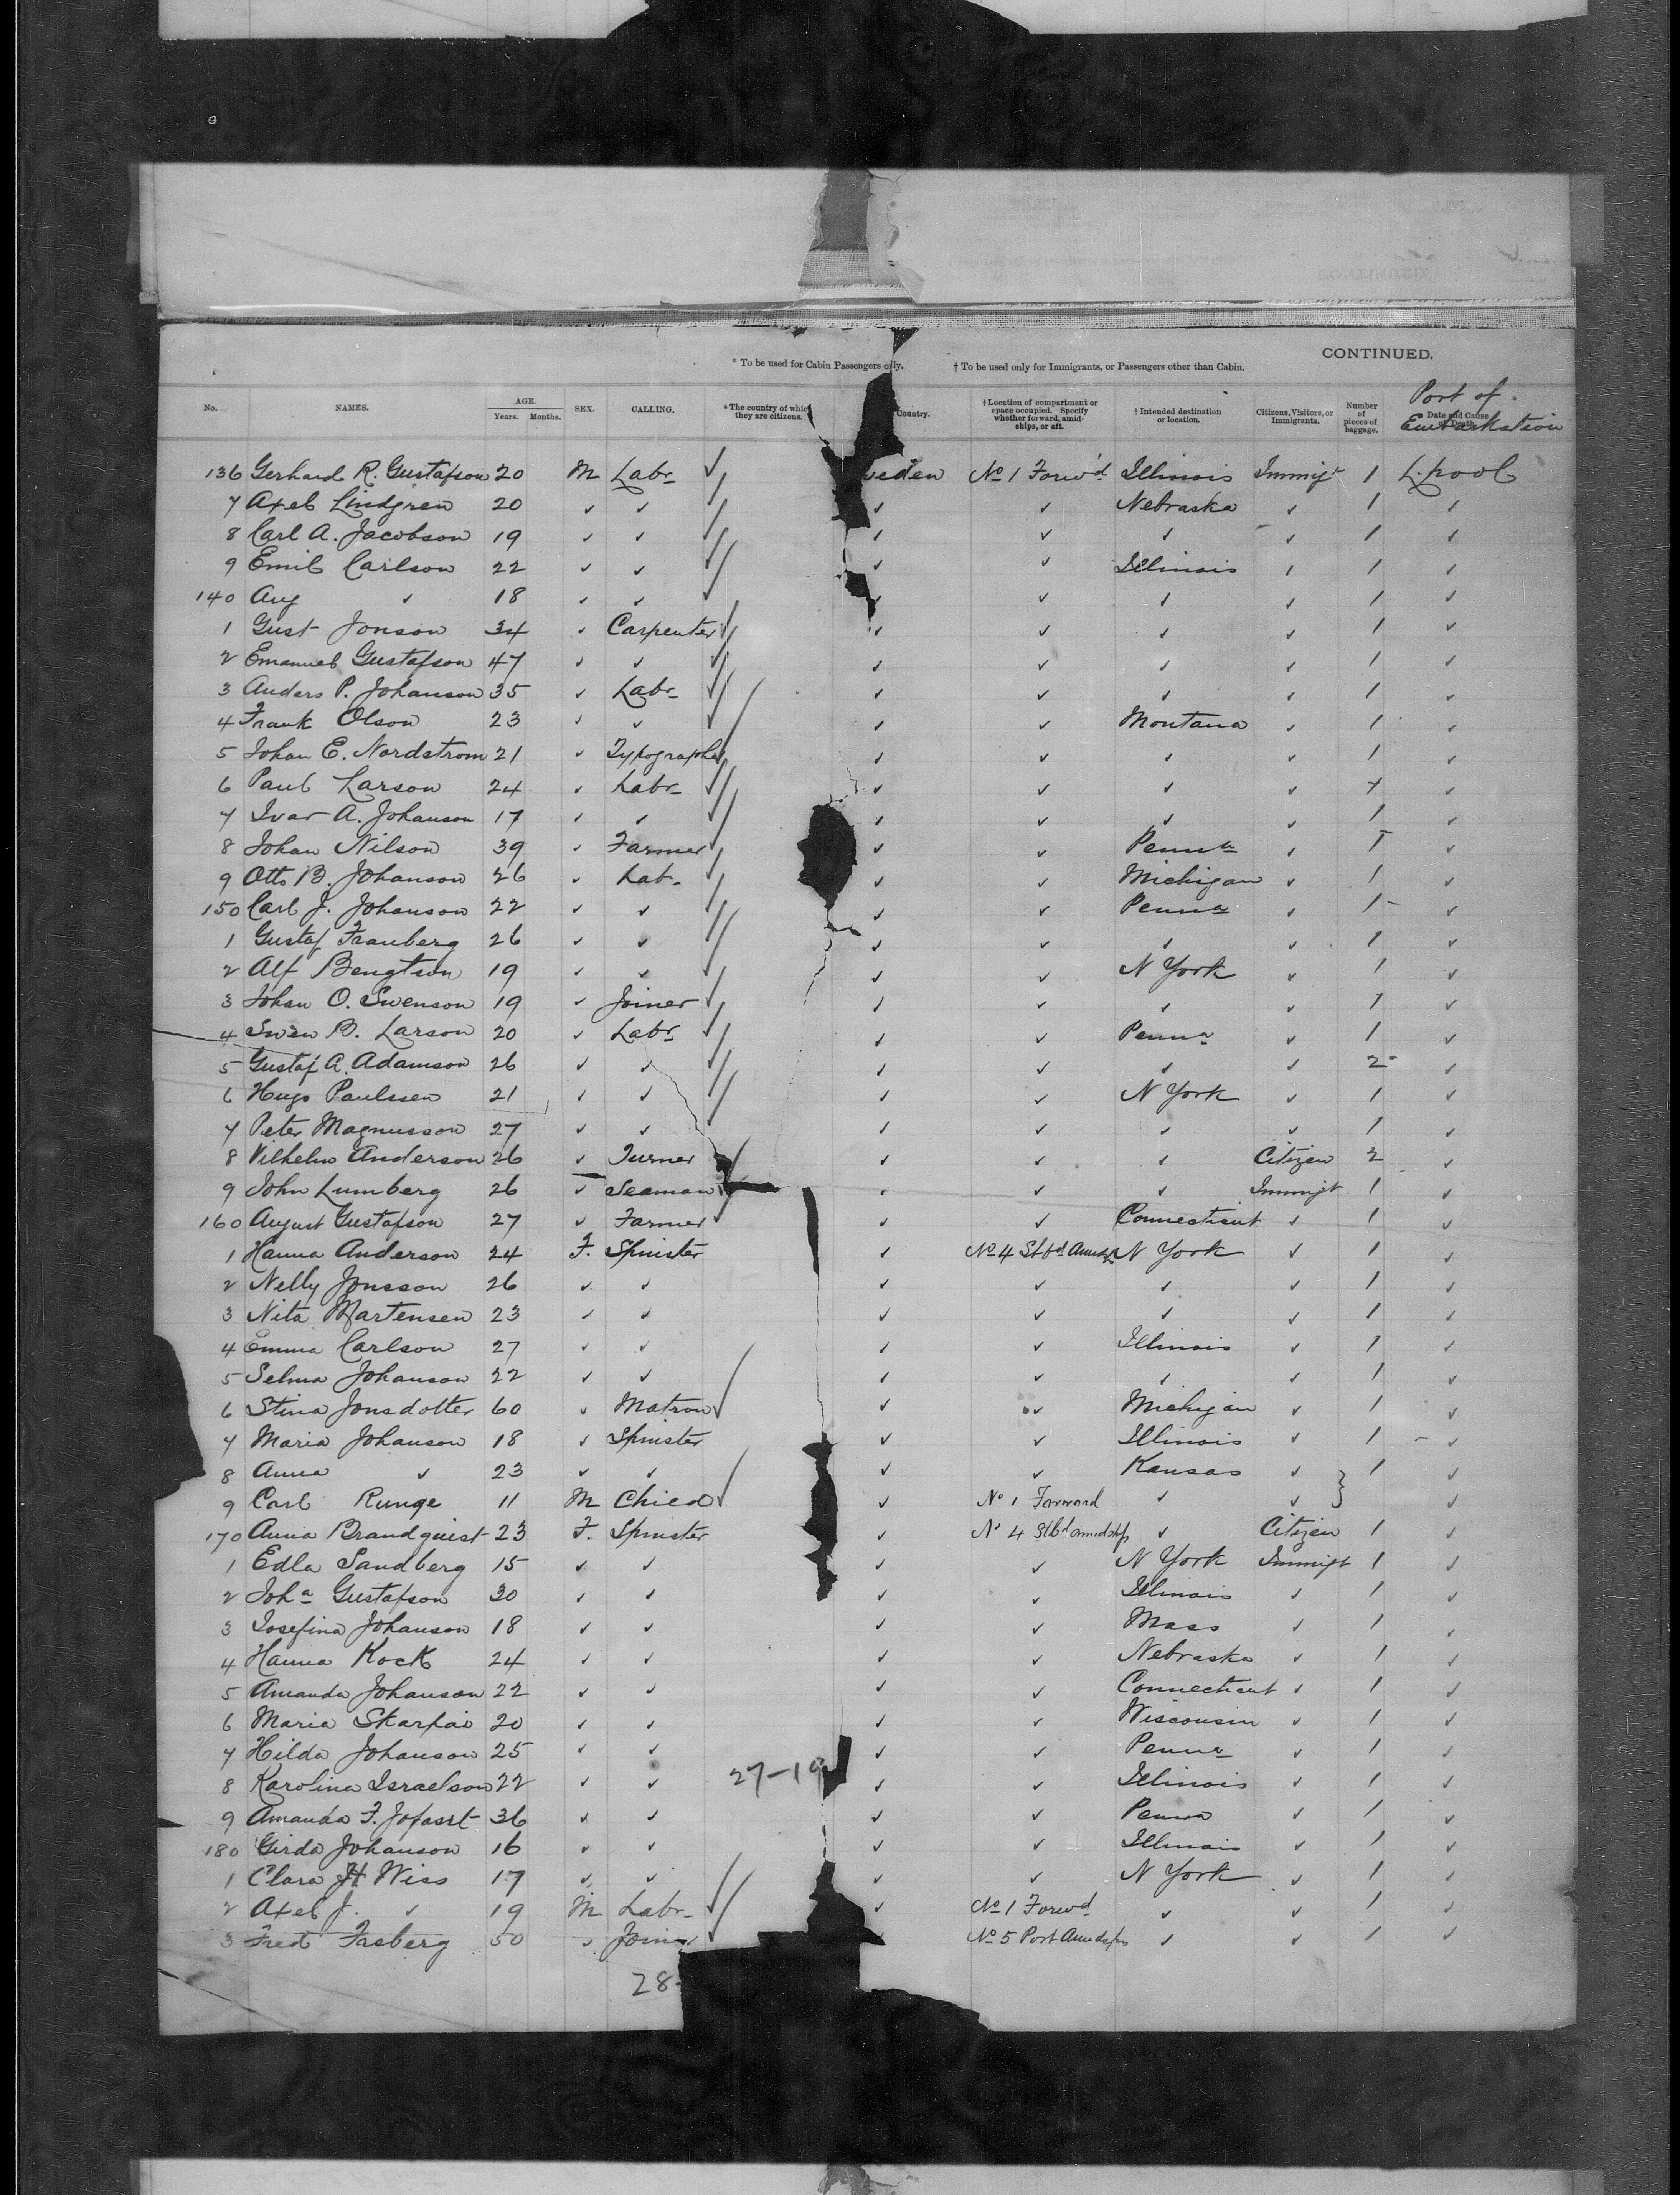 CONTINUED.
* To be used for Cabin Passengers only. † To be used only for Immigrants, or Passengers other than Cabin.
No. NAMES. AGE. Years. Months. SEX. CALLING. * The country of which they are citizens. Country. † Location of compartment or space occupied. Specify whether forward, amidships, or aft. † Intended destination or location. Citizens, Visitors, or Immigrants. Number of pieces of baggage. Date and Cause of Death. Port of Embarkation
136 Gerhard R. Gustafson 20 M Labr ✓ eden No 1 Forwd Illinois Immigt 1 L.pool
7 Axel Lindgren 20 ✓ ✓ ✓ ✓ Nebraska ✓ 1 ✓
8 Carl A. Jacobson 19 ✓ ✓ ✓ ✓ ✓ ✓ 1 ✓
9 Emil Carlson 22 ✓ ✓ ✓ ✓ Illinois ✓ 1 ✓
140 Aug ✓ 18 ✓ ✓ ✓ ✓ ✓ ✓ 1 ✓
1 Gust Jonson 34 ✓ Carpenter ✓ ✓ ✓ ✓ 1 ✓
2 Emanuel Gustafson 47 ✓ ✓ ✓ ✓ ✓ ✓ 1 ✓
3 Anders P. Johanson 35 ✓ Labr ✓ ✓ ✓ ✓ 1 ✓
4 Frank Olson 23 ✓ ✓ ✓ ✓ Montana ✓ 1 ✓
5 Johan E. Nordstrom 21 ✓ Typographer ✓ ✓ ✓ ✓ 1 ✓
6 Paul Larson 24 ✓ Labr ✓ ✓ ✓ ✓ ✓
7 Ivar A. Johanson 17 ✓ ✓ ✓ ✓ ✓ ✓ 1 ✓
8 Johan Nilson 39 ✓ Farmer ✓ ✓ Penna ✓ 1 ✓
9 Otto B. Johanson 26 ✓ Lab. ✓ ✓ Michigan ✓ 1 ✓
150 Carl J. Johanson 22 ✓ ✓ ✓ ✓ Penna ✓ 1 ✓
1 Gustaf Franberg 26 ✓ ✓ ✓ ✓ ✓ ✓ 1 ✓
2 Alf Bengtson 19 ✓ ✓ ✓ ✓ N York ✓ 1 ✓
3 Johan O. Swenson 19 ✓ Joiner ✓ ✓ ✓ ✓ 1 ✓
4 Swen B. Larson 20 ✓ Labr ✓ ✓ Penna ✓ 1 ✓
5 Gustaf A. Adamson 26 ✓ ✓ ✓ ✓ ✓ ✓ 2 ✓
6 Hugo Paulssen 21 ✓ ✓ ✓ ✓ N York ✓ 1 ✓
7 Peter Magnusson 27 ✓ ✓ ✓ ✓ ✓ ✓ 1 ✓
8 Vilhelm Anderson 26 ✓ Turner ✓ ✓ ✓ Citizen 2 ✓
9 John Lumberg 26 ✓ Seaman ✓ ✓ ✓ Immigt 1 ✓
160 August Gustafson 27 ✓ Farmer ✓ ✓ Connecticut ✓ 1 ✓
1 Hanna Anderson 24 F. Spinster ✓ No 4 Stbd Amdsps N York ✓ 1 ✓
2 Nelly Jonsson 26 ✓ ✓ ✓ ✓ ✓ ✓ 1 ✓
3 Nita Martensen 23 ✓ ✓ ✓ ✓ ✓ ✓ 1 ✓
4 Emma Carlson 27 ✓ ✓ ✓ ✓ Illinois ✓ 1 ✓
5 Selma Johanson 22 ✓ ✓ ✓ ✓ ✓ ✓ 1 ✓
6 Stina Jonsdotter 60 ✓ Matron ✓ ✓ Michigan ✓ 1 ✓
7 Maria Johanson 18 ✓ Spinster ✓ ✓ Illinois ✓ 1 ✓
8 Anna ✓ 23 ✓ ✓ ✓ ✓ Kansas ✓ 1 ✓
9 Carl Runge 11 M Child ✓ No 1 Forward ✓ ✓ ✓
170 Anna Brandquist 23 F. Spinster ✓ No 4 Stbd amidshp ✓ Citizen 1 ✓
1 Edla Sandberg 15 ✓ ✓ ✓ ✓ N York Immigt 1 ✓
2 Joha Gustafson 30 ✓ ✓ ✓ ✓ Illinois ✓ 1 ✓
3 Josefina Johanson 18 ✓ ✓ ✓ ✓ Mass ✓ 1 ✓
4 Hanna Kock 24 ✓ ✓ ✓ ✓ Nebraska ✓ 1 ✓
5 Amanda Johanson 22 ✓ ✓ ✓ ✓ Connecticut ✓ 1 ✓
6 Maria 20 ✓ ✓ ✓ ✓ Wisconsin ✓ 1 ✓
7 Hilda Johanson 25 ✓ ✓ ✓ ✓ Penna ✓ 1 ✓
8 Karolina Israelson 22 ✓ ✓ 27-19 ✓ ✓ Illinois ✓ 1 ✓
9 Amanda F. 36 ✓ ✓ ✓ ✓ Penna ✓ 1 ✓
180 Girda Johanson 16 ✓ ✓ ✓ ✓ Illinois ✓ 1 ✓
1 Clara H. Wiss 17 ✓ ✓ ✓ ✓ N York ✓ 1 ✓
2 Axel J. ✓ 19 M Labr ✓ No 1 Forwd ✓ ✓ 1 ✓
3 Fred Fasberg 50 ✓ Joiner No 5 Port Amdsps ✓ ✓ 1 ✓
28-